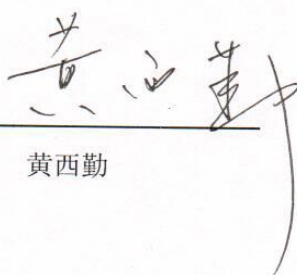 黄西勤
黄西勤